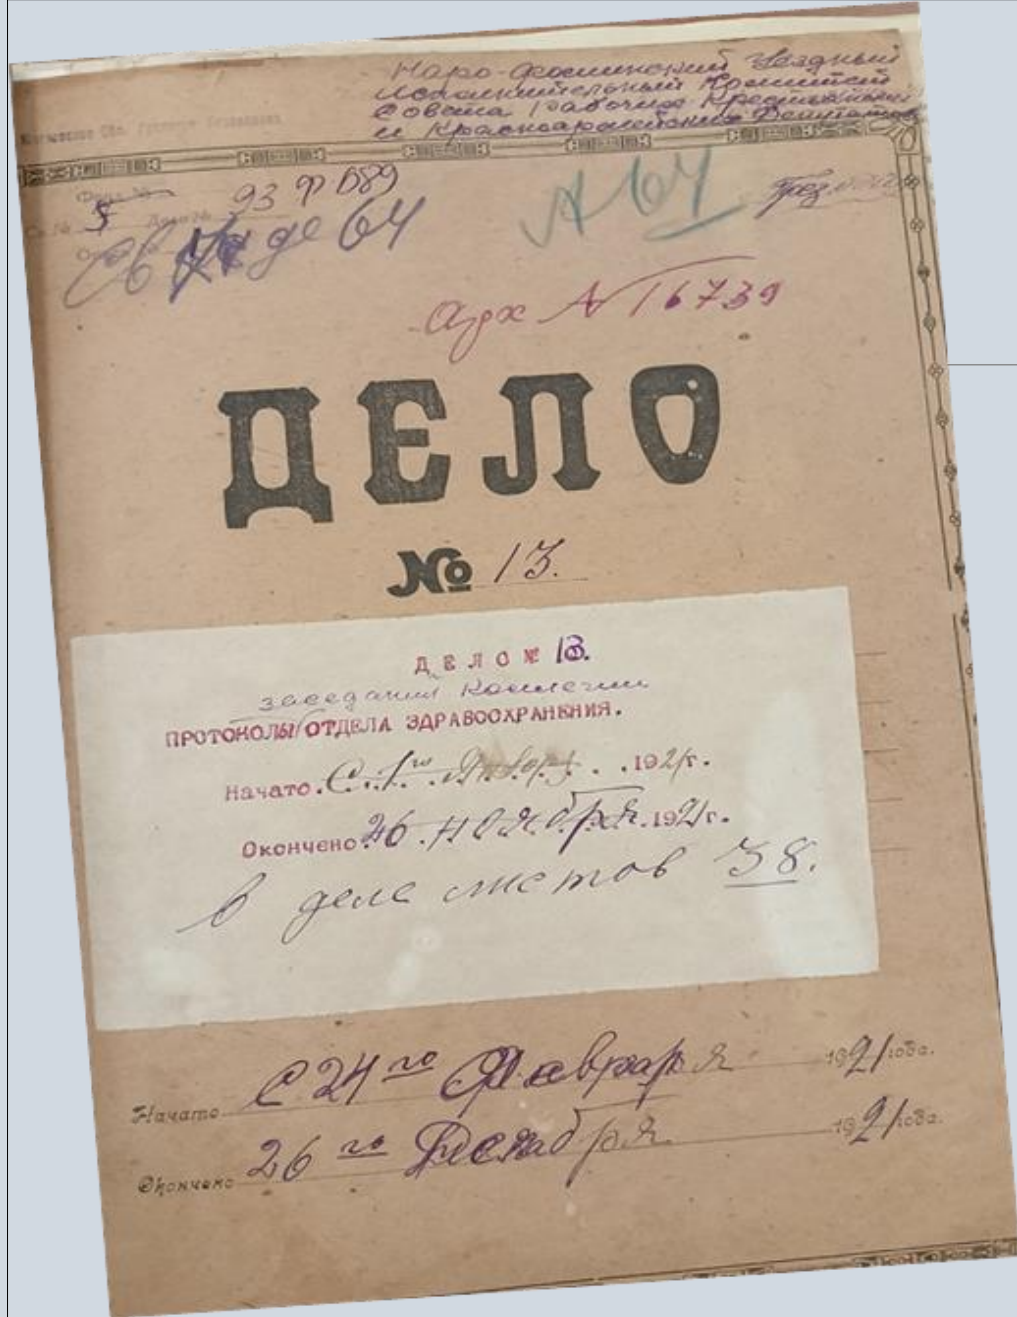 Наро-Фоминский Уездный
Исполнительный Комитет
Совета Рабочих Крестьянских
и Красноармейских Депутатов
Фонд №
Св. № 5 Дело № 93 Ф 689
Св де 64
А 64
Арх № 16739
ДЕЛО
№ 13.
ДЕЛО № 13.
заседаний Коллегии
ПРОТОКОЛЫ ОТДЕЛА ЗДРАВООХРАНЕНИЯ.
Начато. С. 1го Января. 1921г.
Окончено 26 ноября. 1921г.
в деле листов 38.
Начато С 24го Февраря 1921 года.
Окончено 26го Декабря. 1921 года.